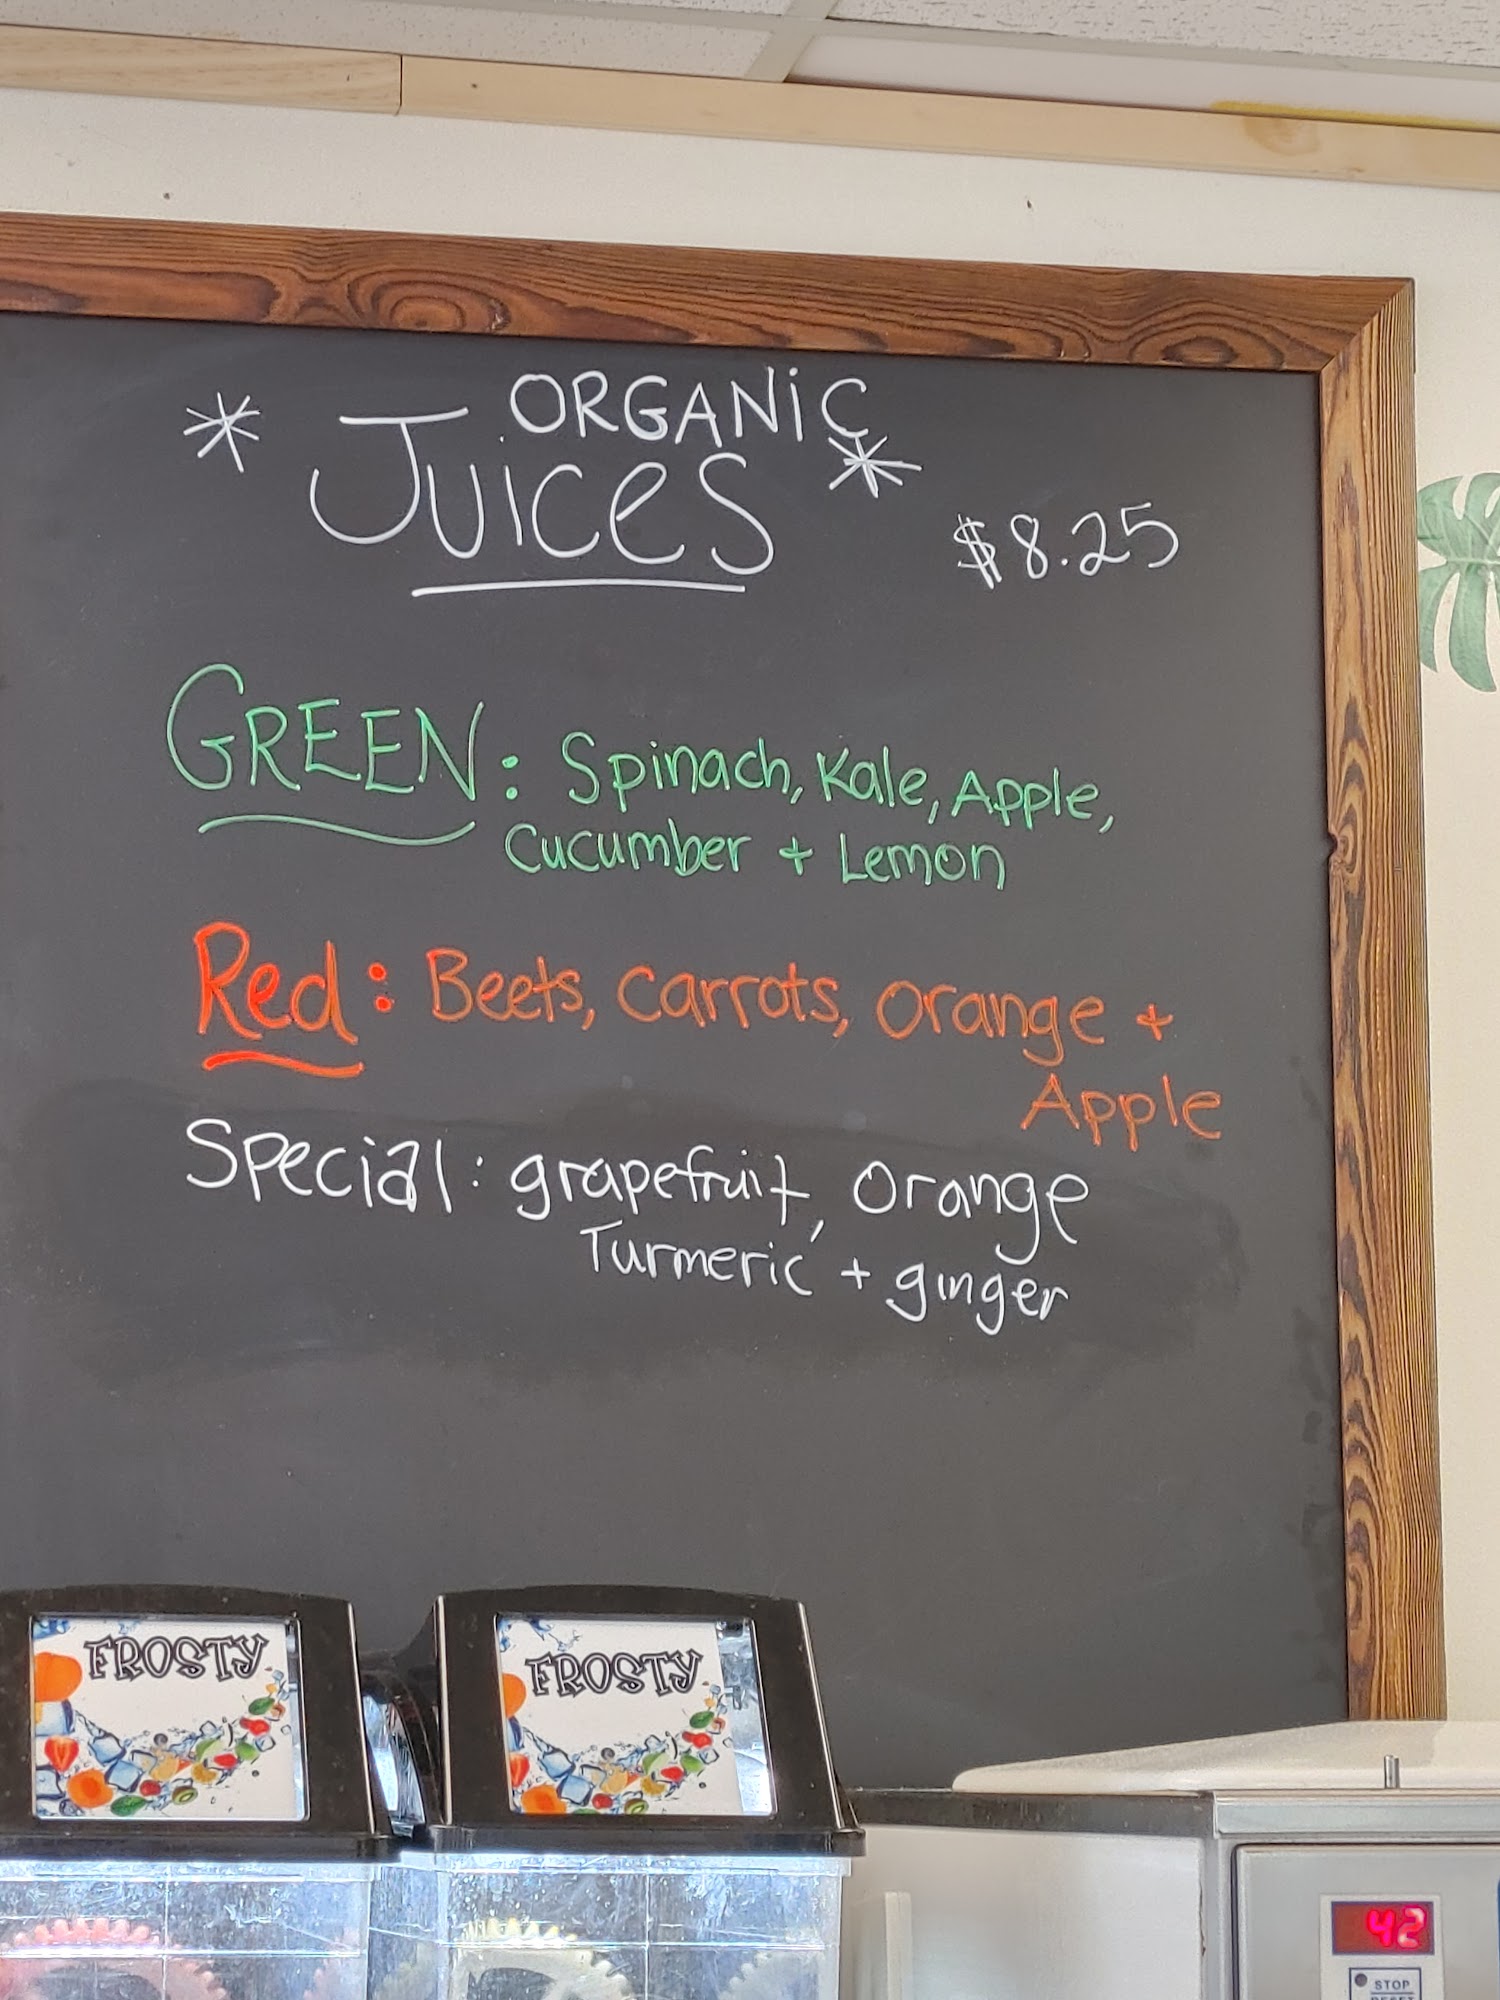 * ORGANiC *
JuiceS
$8.25
GREEN: Spinach, Kale, Apple,
Cucumber + Lemon
Red: Beets, Carrots, Orange +
Apple
Special: grapefruit, Orange
Turmeric + ginger
FROSTY
FROSTY
42
STOP
RESET